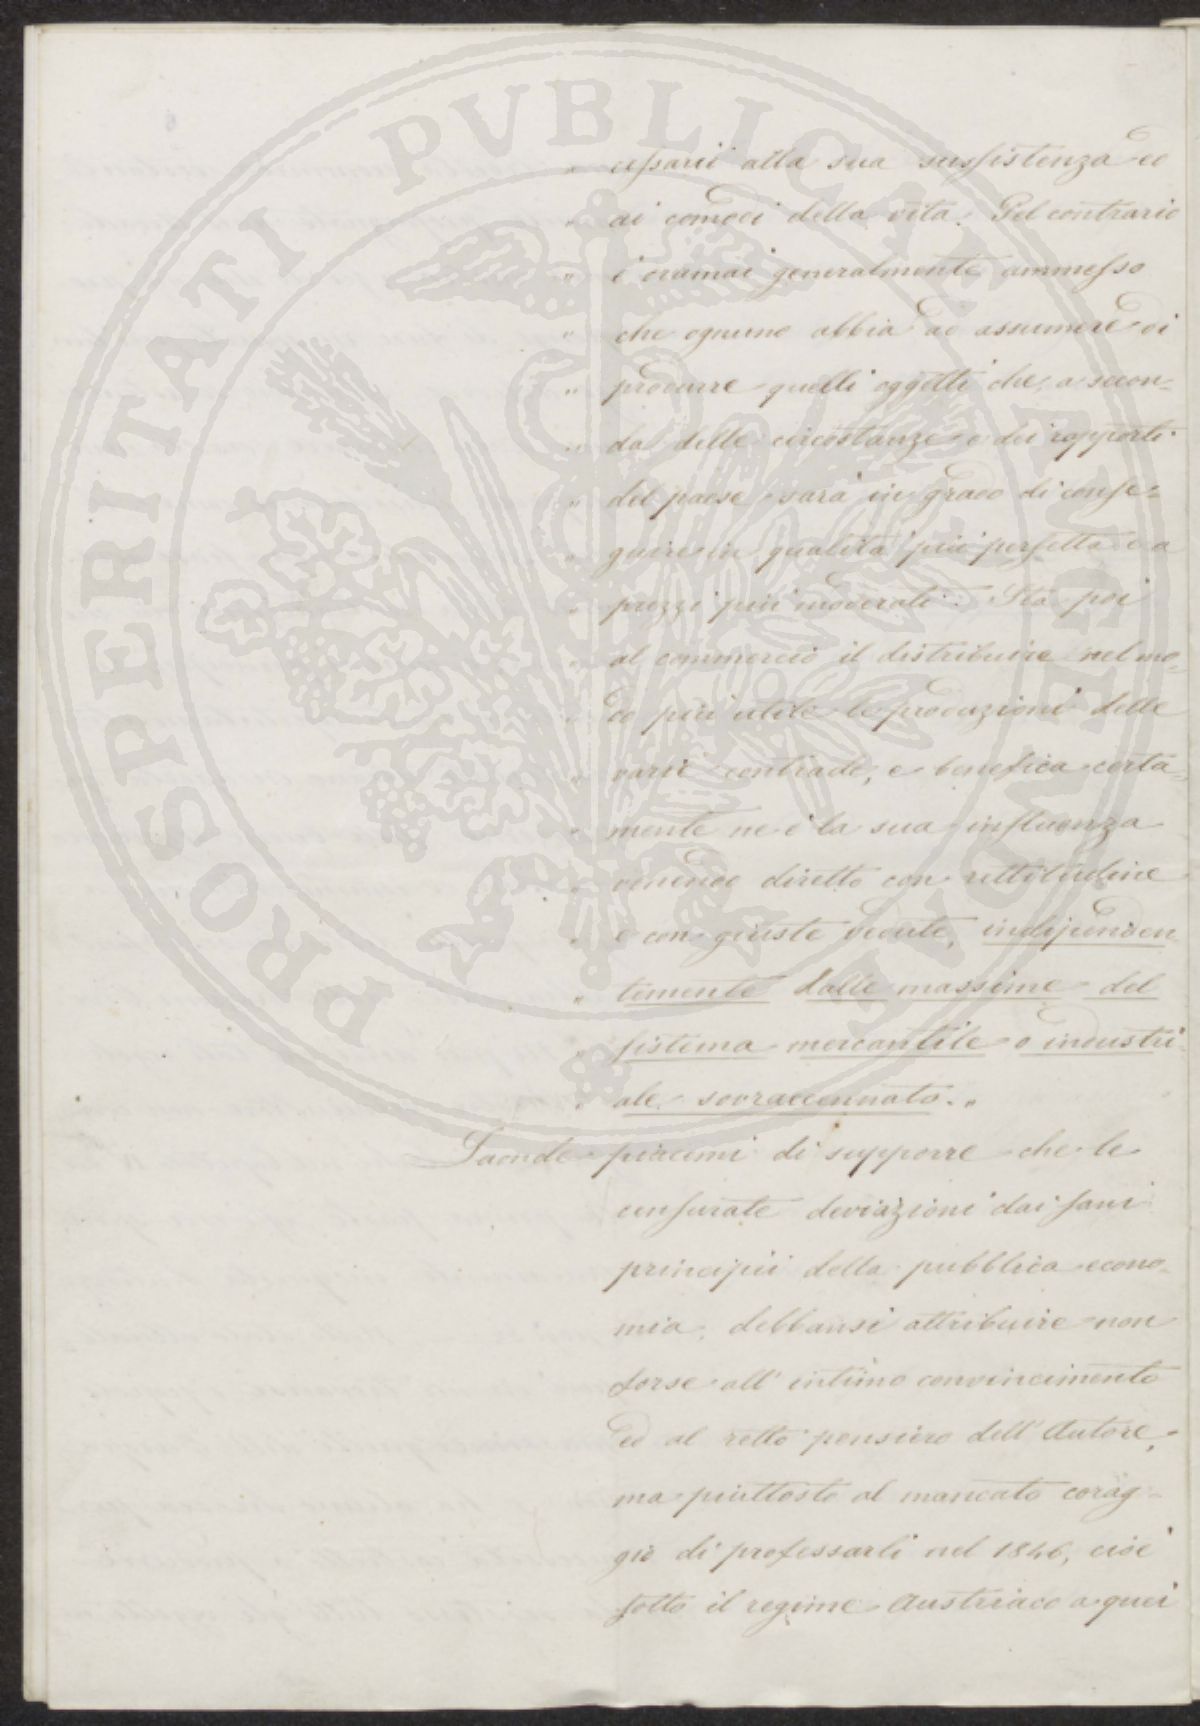 PROSPERITATI PVBLICAE AVGENDAE
„ cessarii alla sua sussistenza ed
„ ai comodi della vita. Pel contrario
„ è oramai generalmente ammesso
„ che ognuno abbia ad assumere di
„ produrre quelli oggetti che, a secon-
„ da delle circostanze e dei rapporti
„ del paese sarà in grado di conse-
„ guire in qualità più perfetta e a
„ prezzi più moderati. Sta poi
„ al commercio il distribuire nel mo-
„ do più utile le produzioni delle
„ varie contrade, e benefica certa-
„ mente ne è la sua influenza
„ venendo diretto con rettitudine
„ e con giuste vedute, indipenden
„ temente dalle massime del
„ sistema mercantile o industri-
„ ale sovraccennato. „
Laonde piacemi di supporre che le
censurate deviazioni dai sani
principii della pubblica econo-
mia, debbansi attribuire non
forse all' intimo convincimento
ed al retto pensiero dell' Autore,
ma piuttosto al mancato corag-
gio di professarli nel 1846, cioè
sotto il regime Austriaco a quei